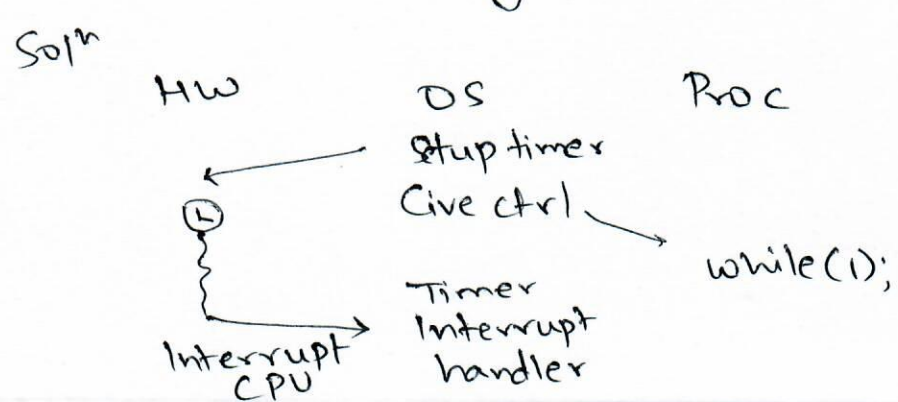 Solⁿ
HW OS Proc
Stup timer
Give ctrl
while(1);
Timer
Interrupt
handler
Interrupt
CPU